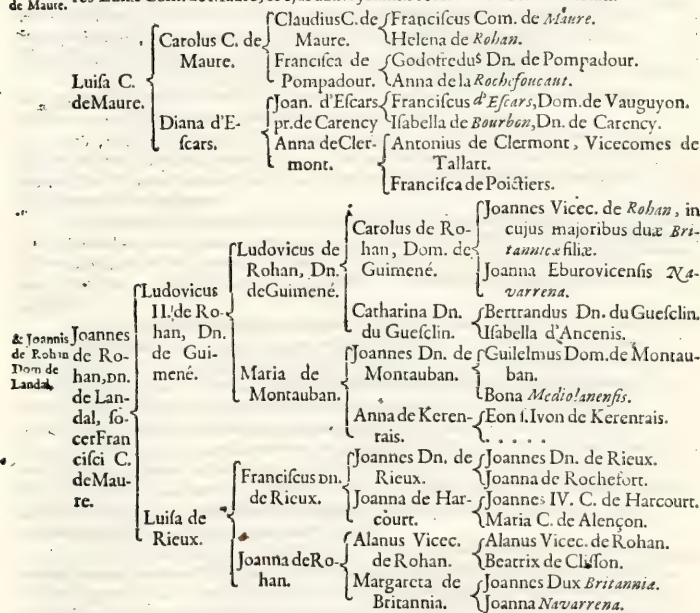 de Maure.
Luisa C. deMaure.
Carolus C. de Maure.
Diana d'Eſcars.
ClaudiusC.de Maure.
Franciſca de Pompadour.
Joan. d'Eſcars pr.de Carency
Anna deClermont.
Franciſcus Com. de Maure.
Helena de Rohan.
Godofredus Dn. de Pompadour.
Anna dela Rochefoucaut.
Franciſcus d'Eſcars, Dom.de Vauguyon.
Iſabella de Bourbon, Dn. de Carency.
Antonius de Clermont, Vicecomes de
Tallart.
Franciſca de Poictiers.
& Joannis
de Rohan
Dom de
Landal,
Joannes
de Ro-
han,DN.
de Lan-
dal, ſo-
cerFran
ciſci C.
deMau-
re.
Ludovicus
II. de Ro-
han, Dn.
de Gui-
mené.
Luiſa de
Rieux.
Ludovicus de
Rohan, Dn.
deGuimené.
Maria de
Montauban.
Franciſcus DN.
de Rieux.
Joanna de Ro-
han.
Carolus de Ro-
han, Dom. de
Guimené.
Catharina Dn.
du Gueſclin.
Joannes Dn. de
Montauban.
Anna de Keren-
rais.
Joannes Dn. de
Rieux.
Joanna de Har-
court.
Alanus Vicec.
de Rohan.
Margareta de
Britannia.
Joannes Vicec. de Rohan, in
cujus majoribus duæ Bri-
tannicæ filiæ.
Joanna Eburovicenſis Na-
varrena.
Bertrandus Dn. du Gueſclin.
Iſabella d'Ancenis.
Guilelmus Dom.de Montau-
ban.
Bona Mediolanenſis.
Eon ſ. Ivon de Kerenrais.
. . . . .
Joannes Dn. de Rieux.
Joanna de Rochefort.
Joannes IV. C. de Harcourt.
Maria C. de Alençon.
Alanus Vicec. de Rohan.
Beatrix de Cliſſon.
Joannes Dux Britanniæ.
Joanna Navarrena.